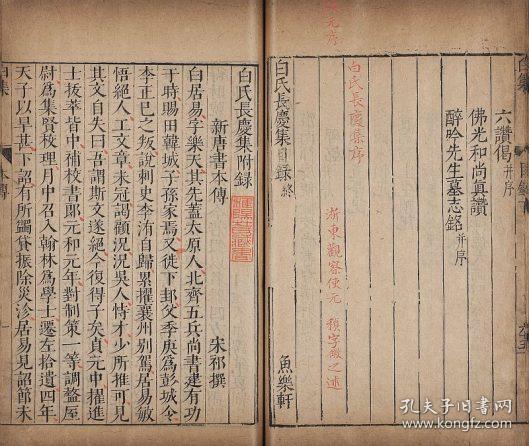 六讚偈并序
佛光和尚真讚
醉吟先生墓志銘并序
白氏長慶集序
浙東觀察使元 稹字微之述
白氏長慶集目録終
魚樂軒
白氏長慶集附録
新唐書本傳 宋祁撰
白居易字樂天其先蓋太原人北齊五兵尚書建有功
于時賜田韓城子孫家焉又徙下邽父季庚爲彭城令
李正巳之叛說刺史李洧自歸累擢襄州别駕居易敏
悟絕人工文章未冠謁顧況況吳人恃才少所推可見
其文自失曰吾謂斯文遂絕今復得子矣貞元中擢進
士拔萃皆中補校書郎元和元年對制策一等調盩厔
尉爲集賢校理月中召入翰林爲學士遷左拾遺四年
天子以旱甚下詔有所蠲貸振除災沴居易見詔節未
白集 本傳 一
孔夫子旧书网
www.kongfz.com